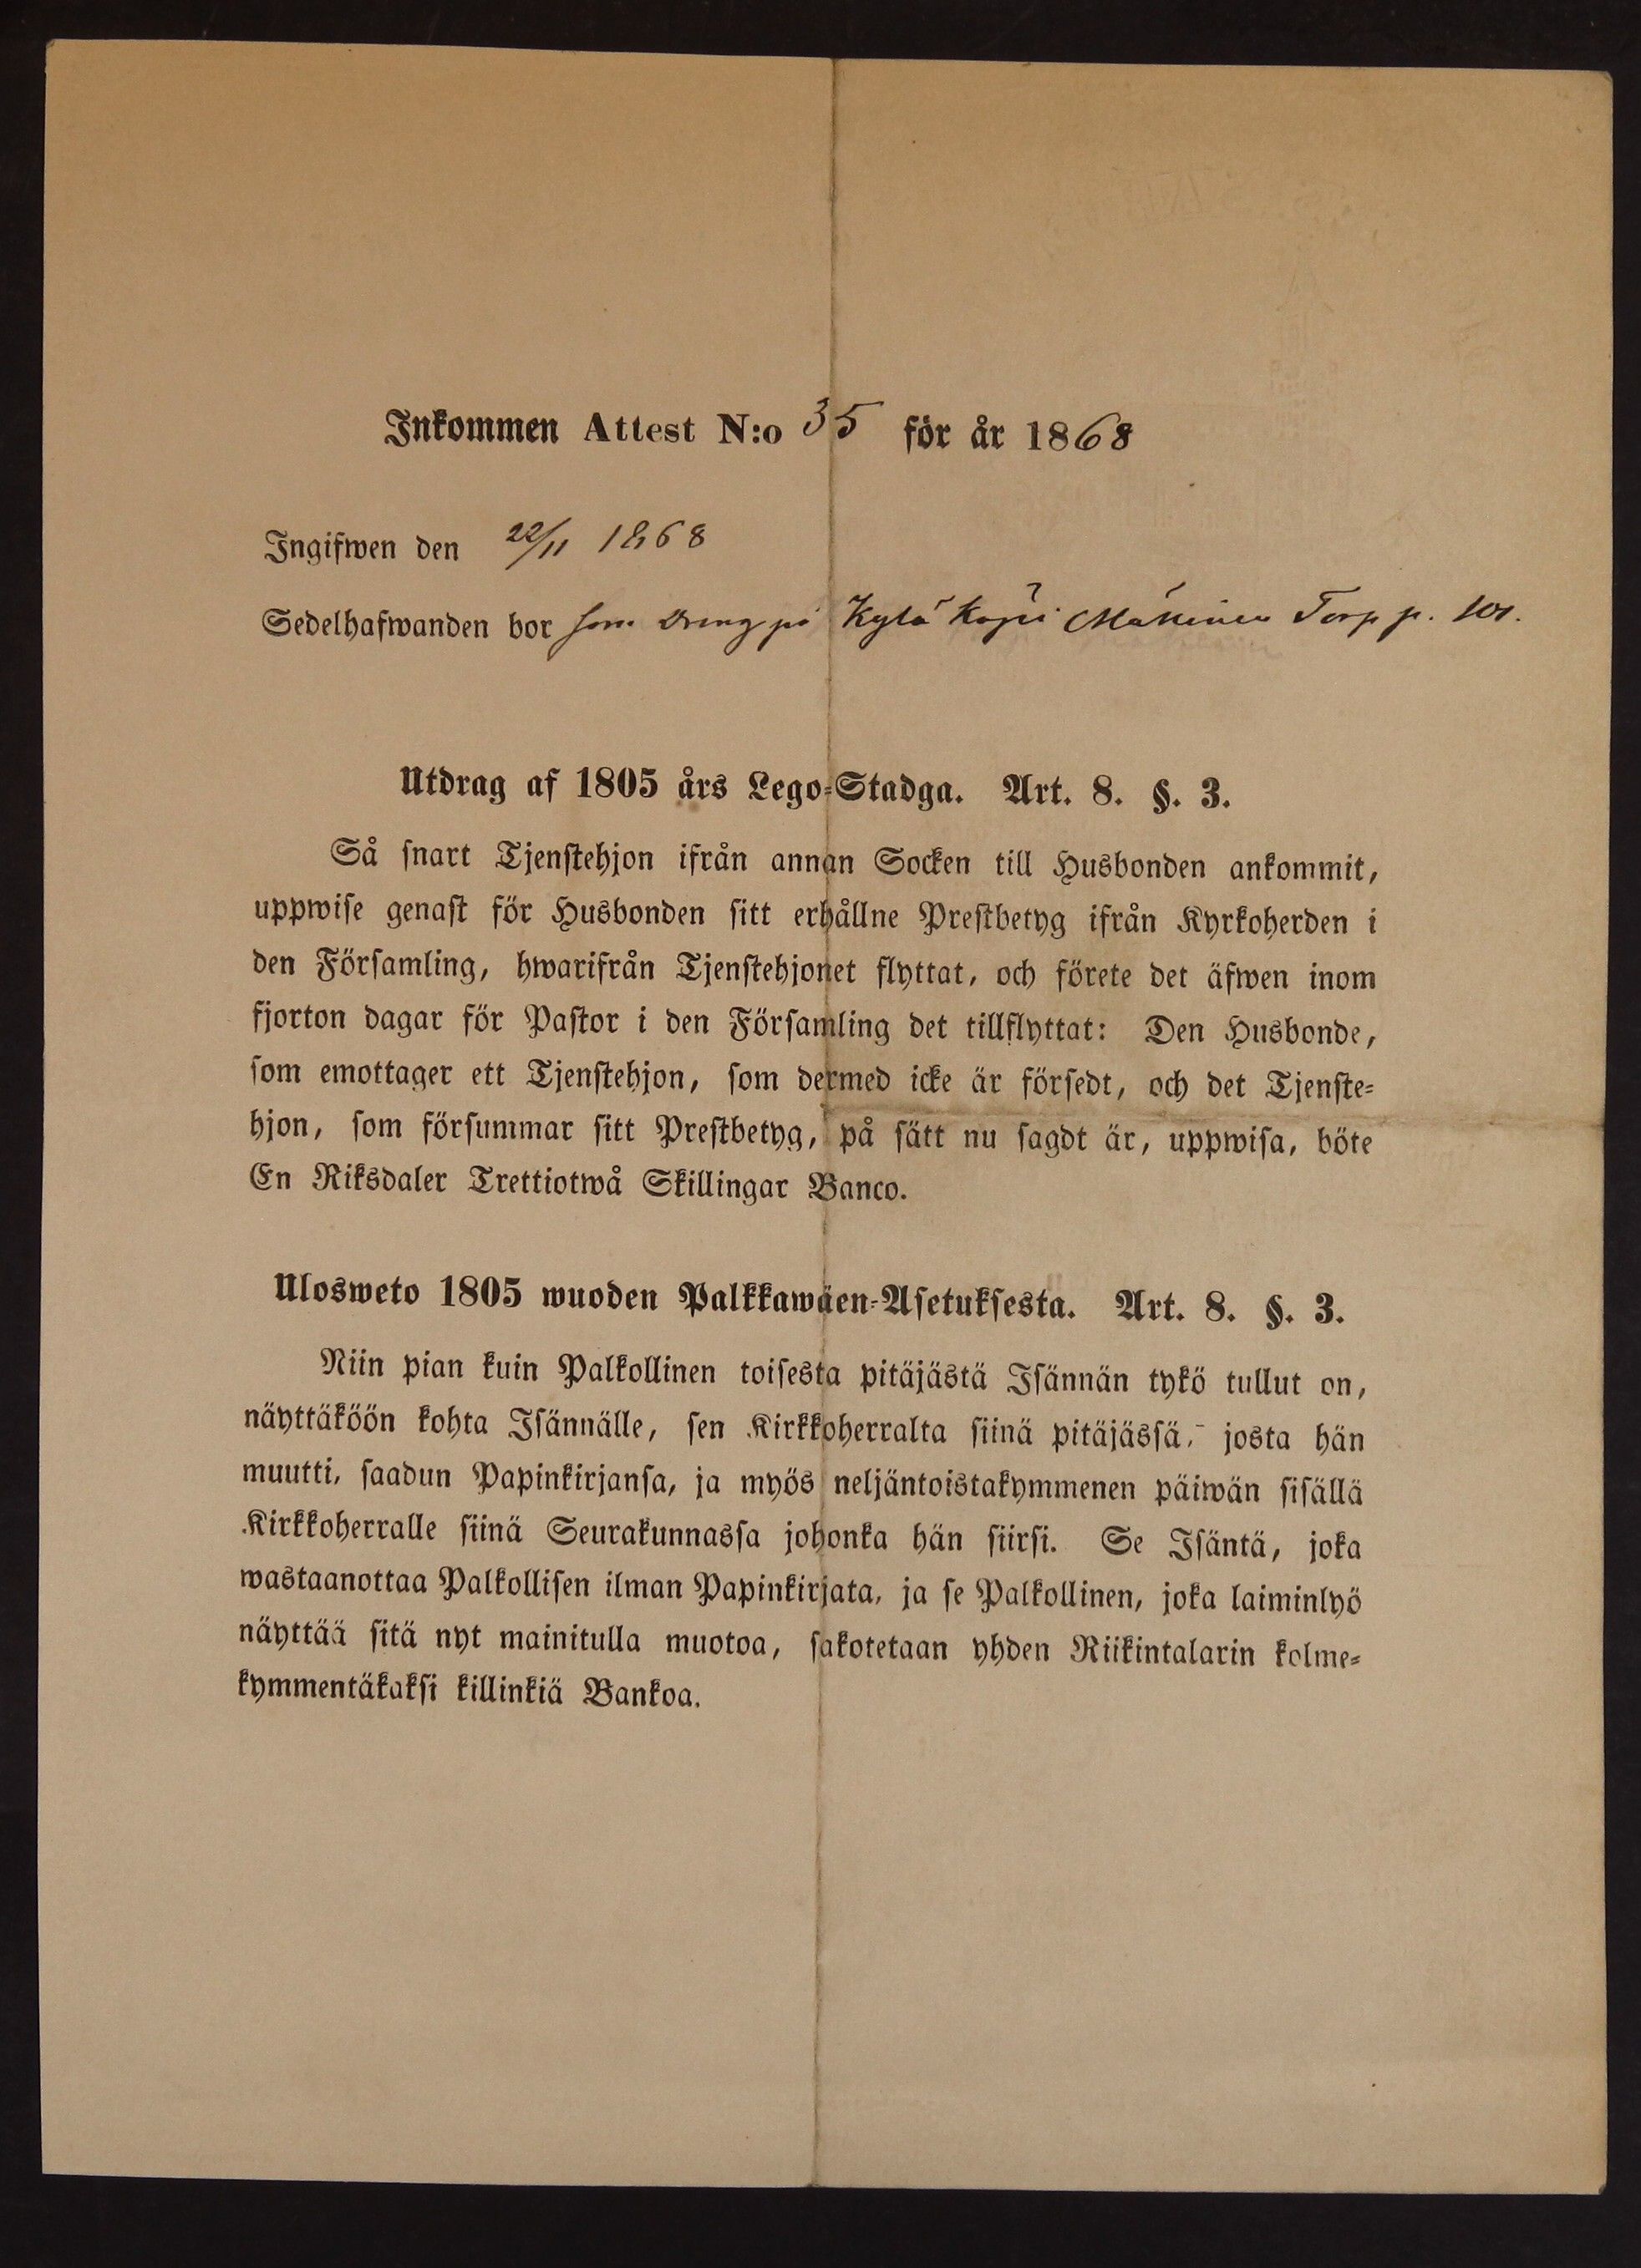 Inkommen Attest N:o 35 för år 1868
Ingifwen den 22/11 1868
Sedelhafwanden bor som Dreng på Kylä Mäkinen Torp p. 101.
Utdrag af 1805 års Lego-Stadga. Art. 8. §. 3.
Så snart Tjenstehjon ifrån annan Socken till Husbonden ankommit,
uppwise genast för Husbonden sitt erhållne Prestbetyg ifrån Kyrkoherden i
den Församling, hwarifrån Tjenstehjonet flyttat, och förete det äfwen inom
fjorton dagar för Pastor i den Församling det tillflyttat: Den Husbonde,
som emottager ett Tjenstehjon, som dermed icke är försedt, och det Tjenste-
hjon, som försummar sitt Prestbetyg, på sätt nu sagdt är, uppwisa, böte
En Riksdaler Trettiotwå Skillingar Banco.
Ulosweto 1805 wuoden Palkkawäen-Asetuksesta. Art. 8. §. 3.
Niin pian kuin Palkollinen toisesta pitäjästä Isännän tykö tullut on,
näyttäköön kohta Isännälle, sen Kirkkoherralta siinä pitäjässä, josta hän
muutti, saadun Papinkirjansa, ja myös neljäntoistakymmenen päiwän sisällä
Kirkkoherralle siinä Seurakunnassa johonka hän siirsi. Se Isäntä, joka
wastaanottaa Palkollisen ilman Papinkirjata, ja se Palkollinen, joka laiminlyö
näyttää sitä nyt mainitulla muotoa, sakotetaan yhden Riikintalarin kolme-
kymmentäkaksi killinkiä Bankoa.